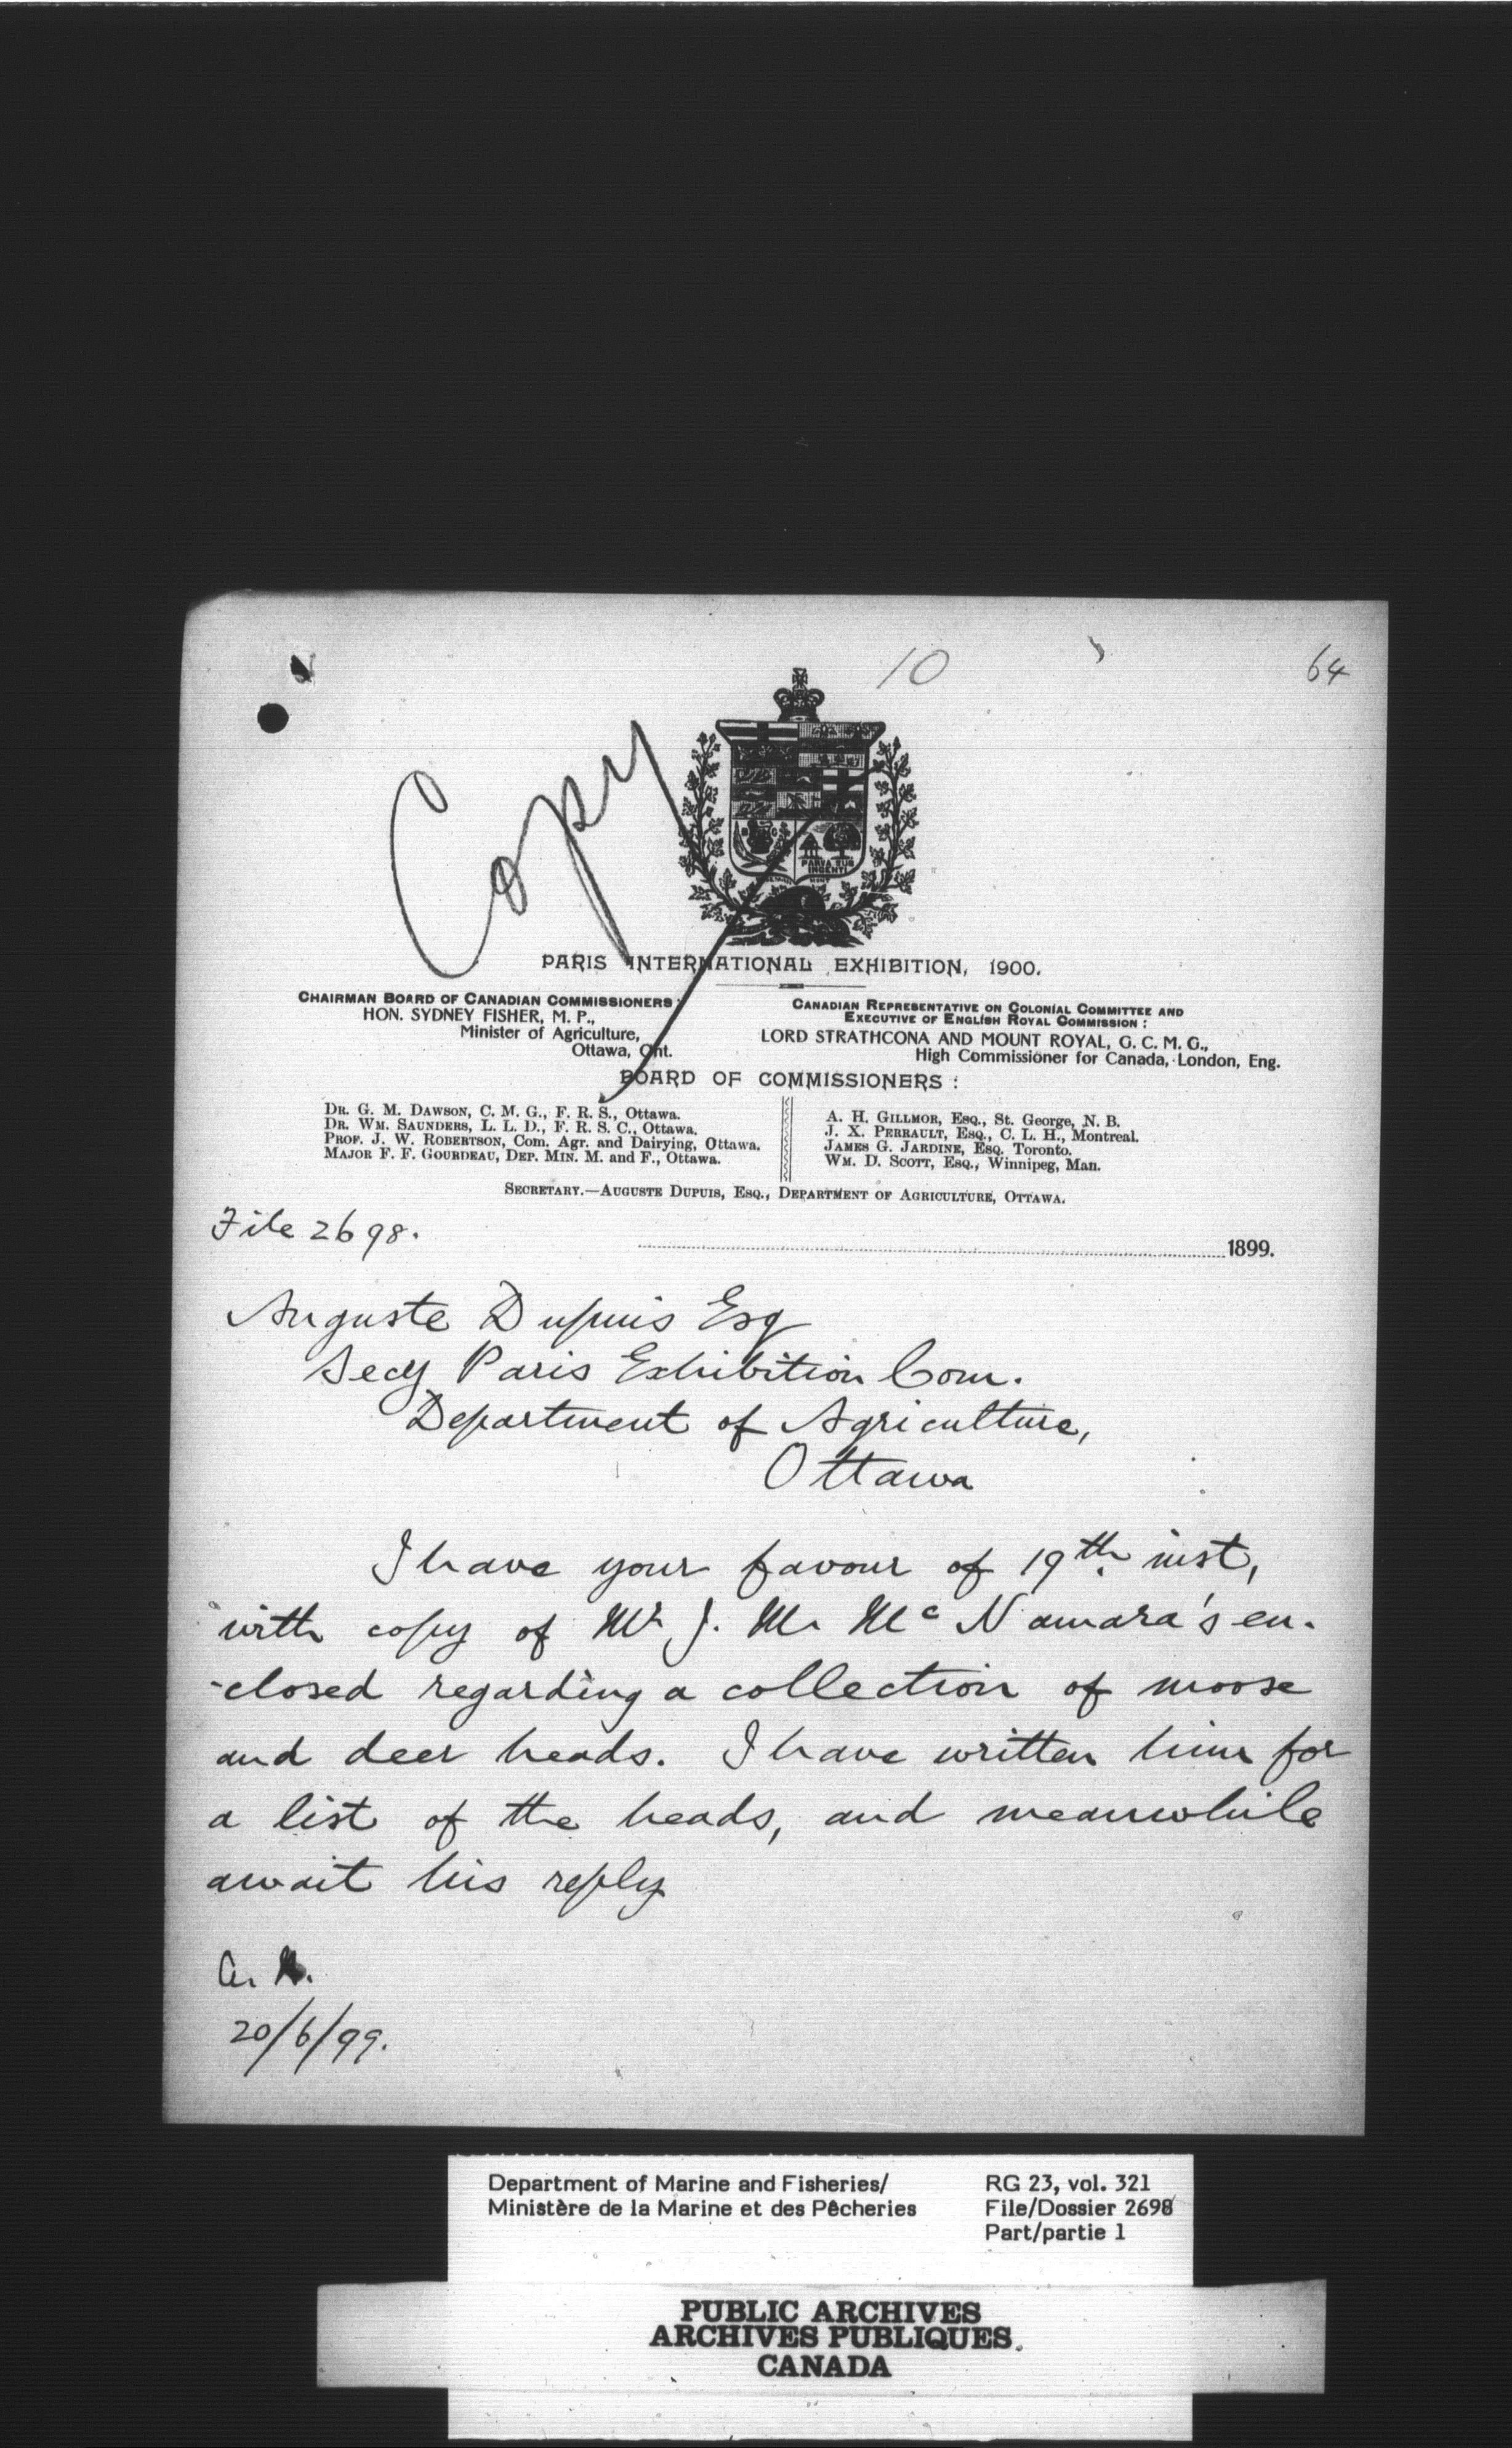 10
64
Copy
PARVA SUB
INGENTI
PARIS INTERNATIONAL EXHIBITION, 1900.
CHAIRMAN BOARD OF CANADIAN COMMISSIONERS:
HON. SYDNEY FISHER, M. P.,
Minister of Agriculture,
Ottawa, Ont.
CANADIAN REPRESENTATIVE ON COLONIAL COMMITTEE AND
EXECUTIVE OF ENGLISH ROYAL COMMISSION :
LORD STRATHCONA AND MOUNT ROYAL, G. C. M. G.,
High Commissioner for Canada, London, Eng.
BOARD OF COMMISSIONERS :
DR. G. M. DAWSON, C. M. G., F. R. S., Ottawa.
DR. WM. SAUNDERS, L. L. D., F. R. S. C., Ottawa.
PROF. J. W. ROBERTSON, Com. Agr. and Dairying, Ottawa.
MAJOR F. F. GOURDEAU, DEP. MIN. M. and F., Ottawa.
A. H. GILLMOR, ESQ., St. George, N. B.
J. X. PERRAULT, ESQ., C. L. H., Montreal.
JAMES G. JARDINE, ESQ. Toronto.
WM. D. SCOTT, ESQ., Winnipeg, Man.
SECRETARY.—AUGUSTE DUPUIS, ESQ., DEPARTMENT OF AGRICULTURE, OTTAWA.
File 2698.
1899.
Auguste Dupuis Esq
Secy Paris Exhibition Com.
Department of Agriculture,
Ottawa
I have your favour of 19th inst,
with copy of Mr J. M. McNamara's en-
-closed regarding a collection of moose
and deer heads. I have written him for
a list of the heads, and meanwhile
await his reply
20/6/99.
Department of Marine and Fisheries/
Ministère de la Marine et des Pêcheries
RG 23, vol. 321
File/Dossier 2698
Part/partie 1
PUBLIC ARCHIVES
ARCHIVES PUBLIQUES
CANADA